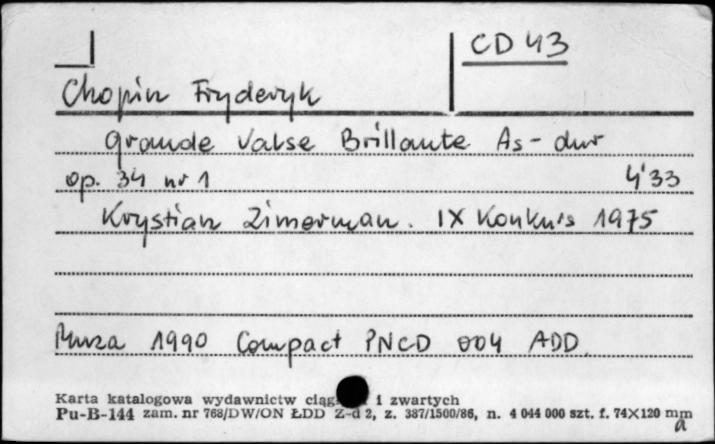 CD 43
Chopin Fryderyk
Grande Valse Brillante As-dur
op. 34 nr 1 4'33
Krystian Zimerman. IX Konkurs 1975
Muza 1990 Compact PNCD 004 ADD
Karta katalogowa wydawnictw i zwartych
Pu-B-144 zam. nr 768/DW/ON ŁDD Z-d 2, z. 387/1500/86, n. 4 044 000 szt. f. 74X120 mm
a